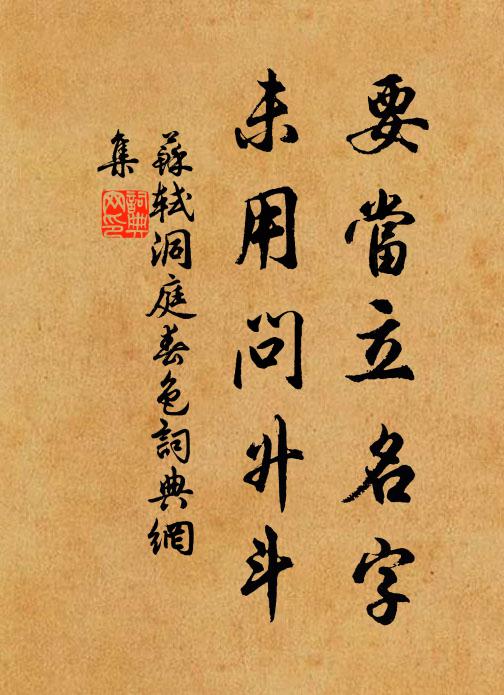 要當立名字
未用問升斗
蘇軾洞庭春色詞典網
集
詞典
网印